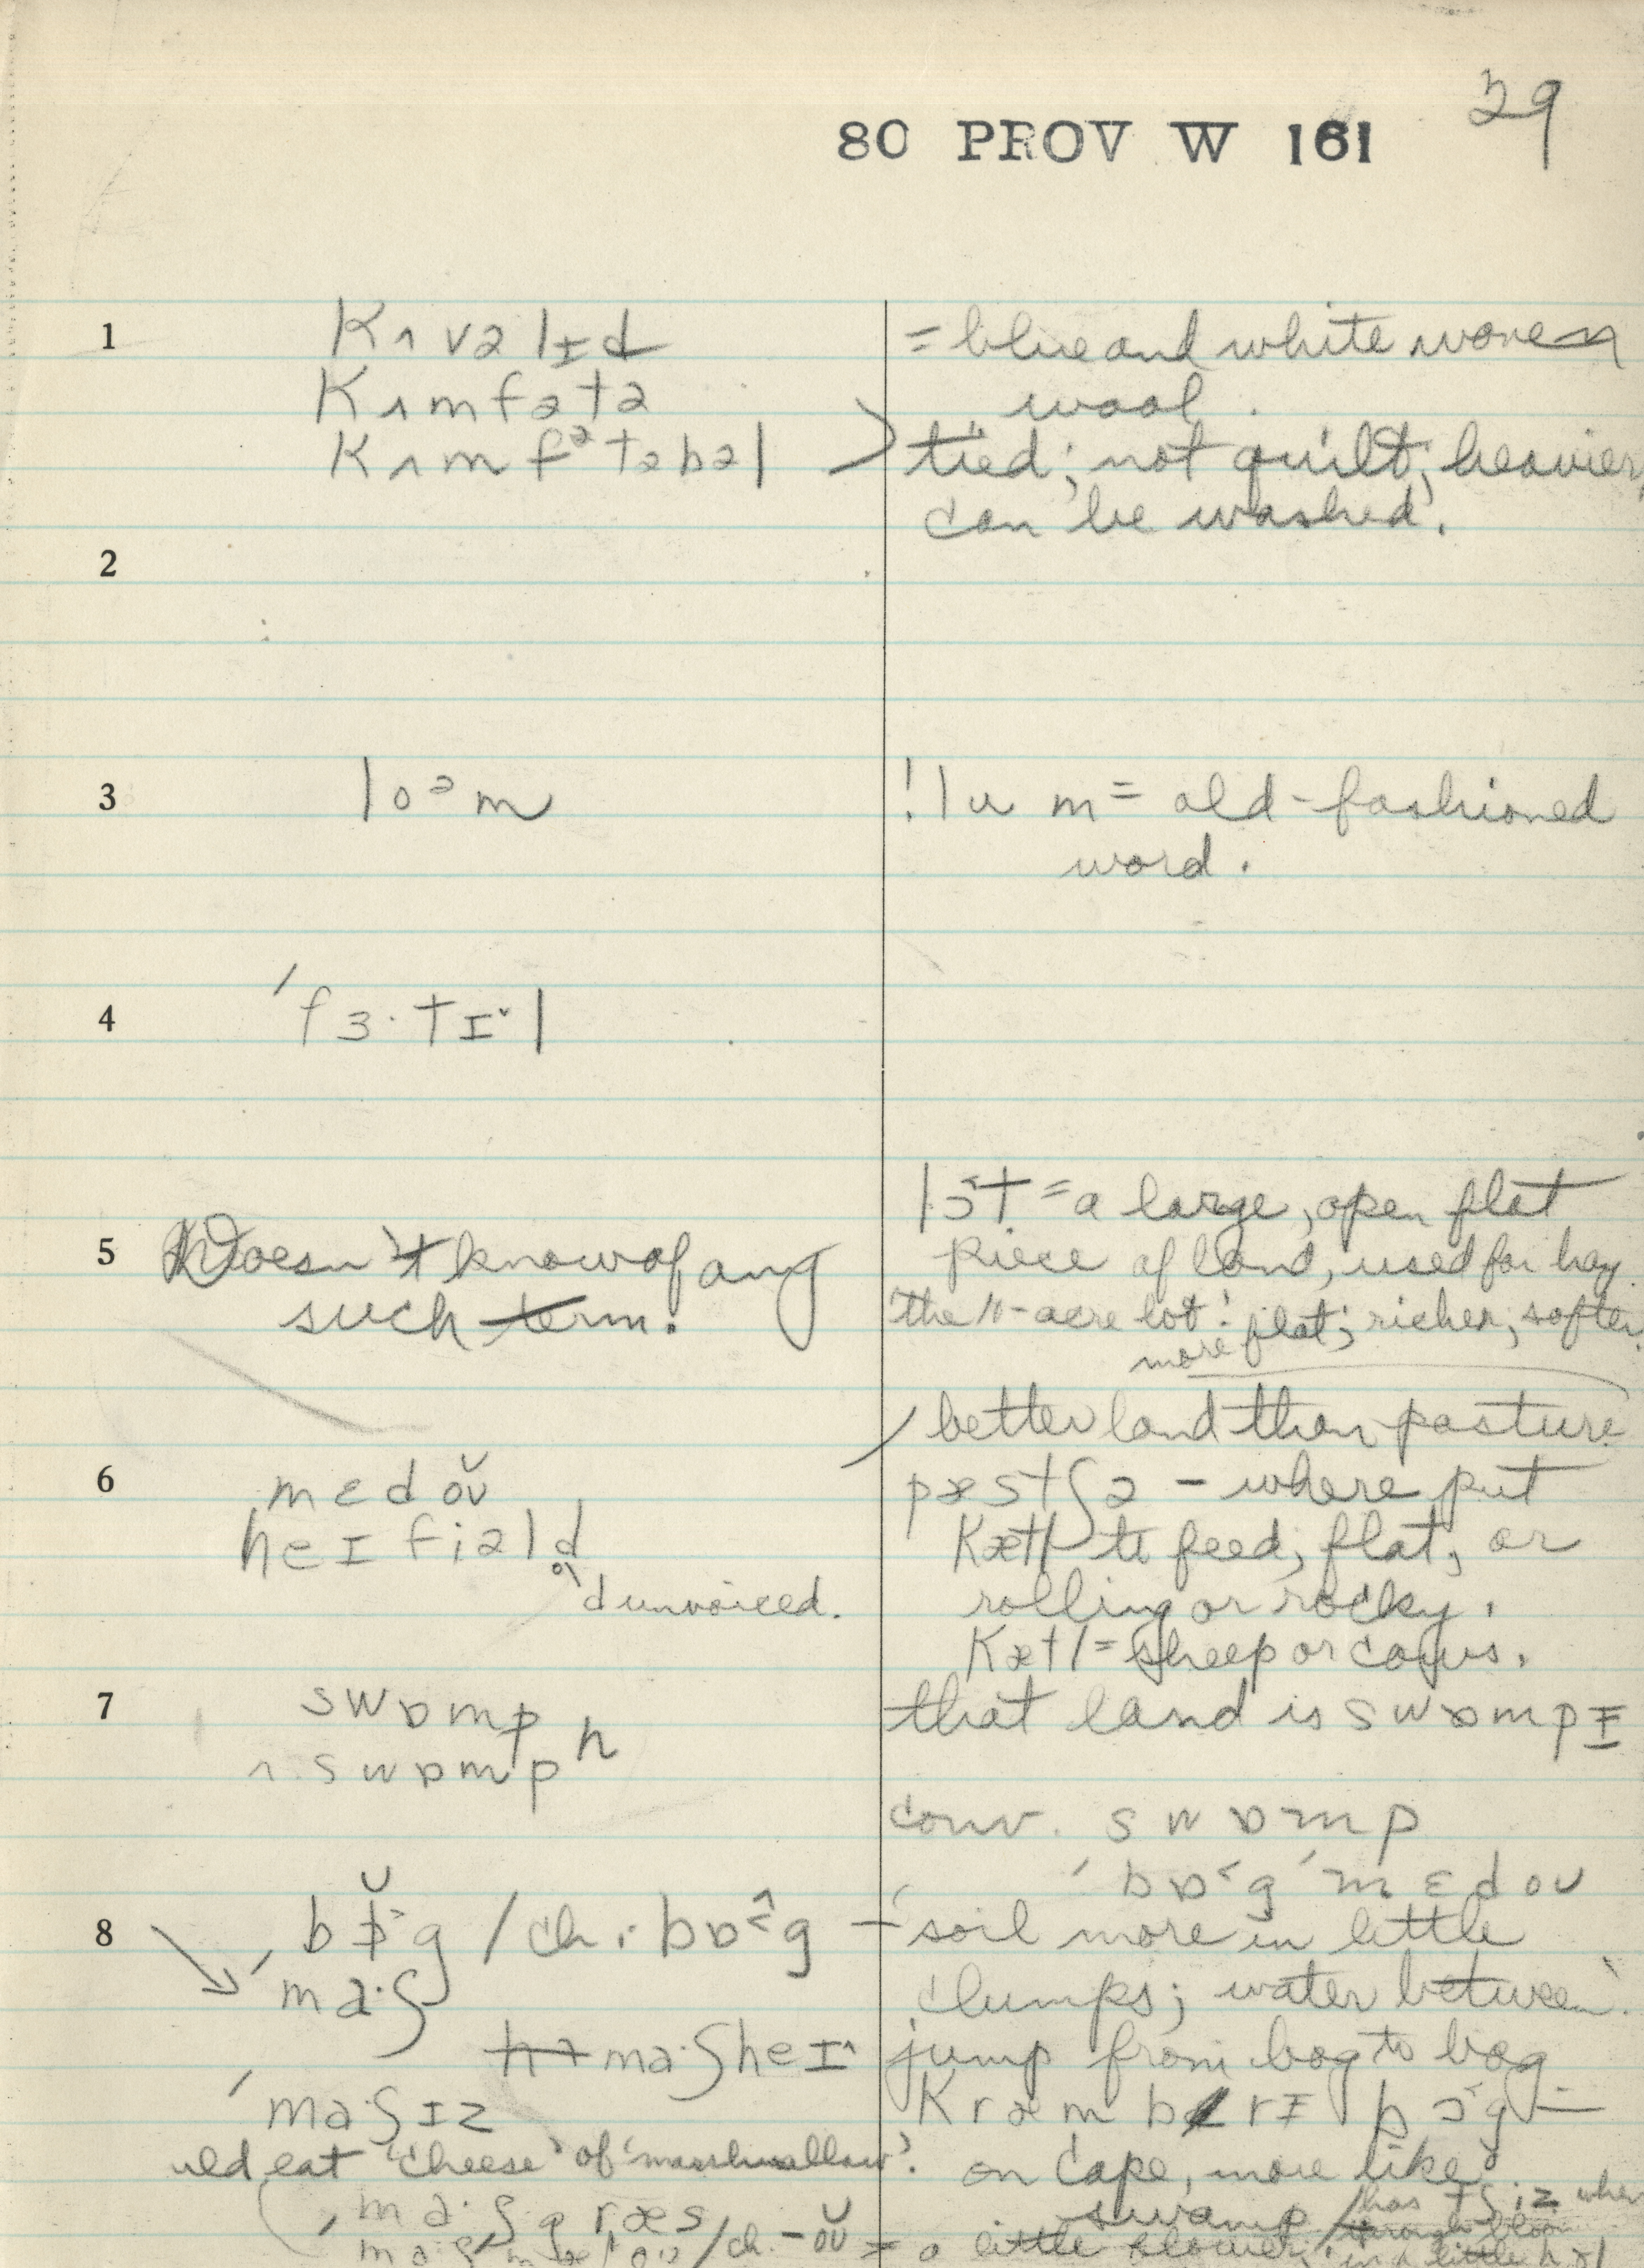 29
80 PROV W 161
1 kʌvəlɪd = blue and white woven
kʌmfətə wool.
kʌmfətəbəl tied; not quilt; heavier,
can be washed.
2
3 loəm ! lum = old-fashioned
word.
4 fɜ·tɪ˅l
lɔ˂t = a large, open flat
5 Doesn't know of any piece of land, used for hay.
such term. 'the 11-acre lot'. flat; richer, softer
more
better land than pasture
6 mɛdoʊ̆ pæstʃə – where put
heɪ fiəld̥ kætl to feed, flat, or
d unvoiced. rolling or rocky.
kætl = sheep or cows.
7 swɒmp that land is swɒmpɪ
ʌ swɒmpʰ
conv. swɒmp
bɒ˂g mɛdoʊ
8 bɒ̆g / ch. bɒ˂g – soil more in little
ma·ʃ clumps; water between.
ma·ʃheɪ^ jump from bog to bog
ma·ʃɪz kræmbrɪ bɔ˂g =
eat 'cheese' of 'marshmallow'. on Cape, more like
ma·ʃgræs swamp / has
/ch. –oʊ̆ = a little flower, in a little